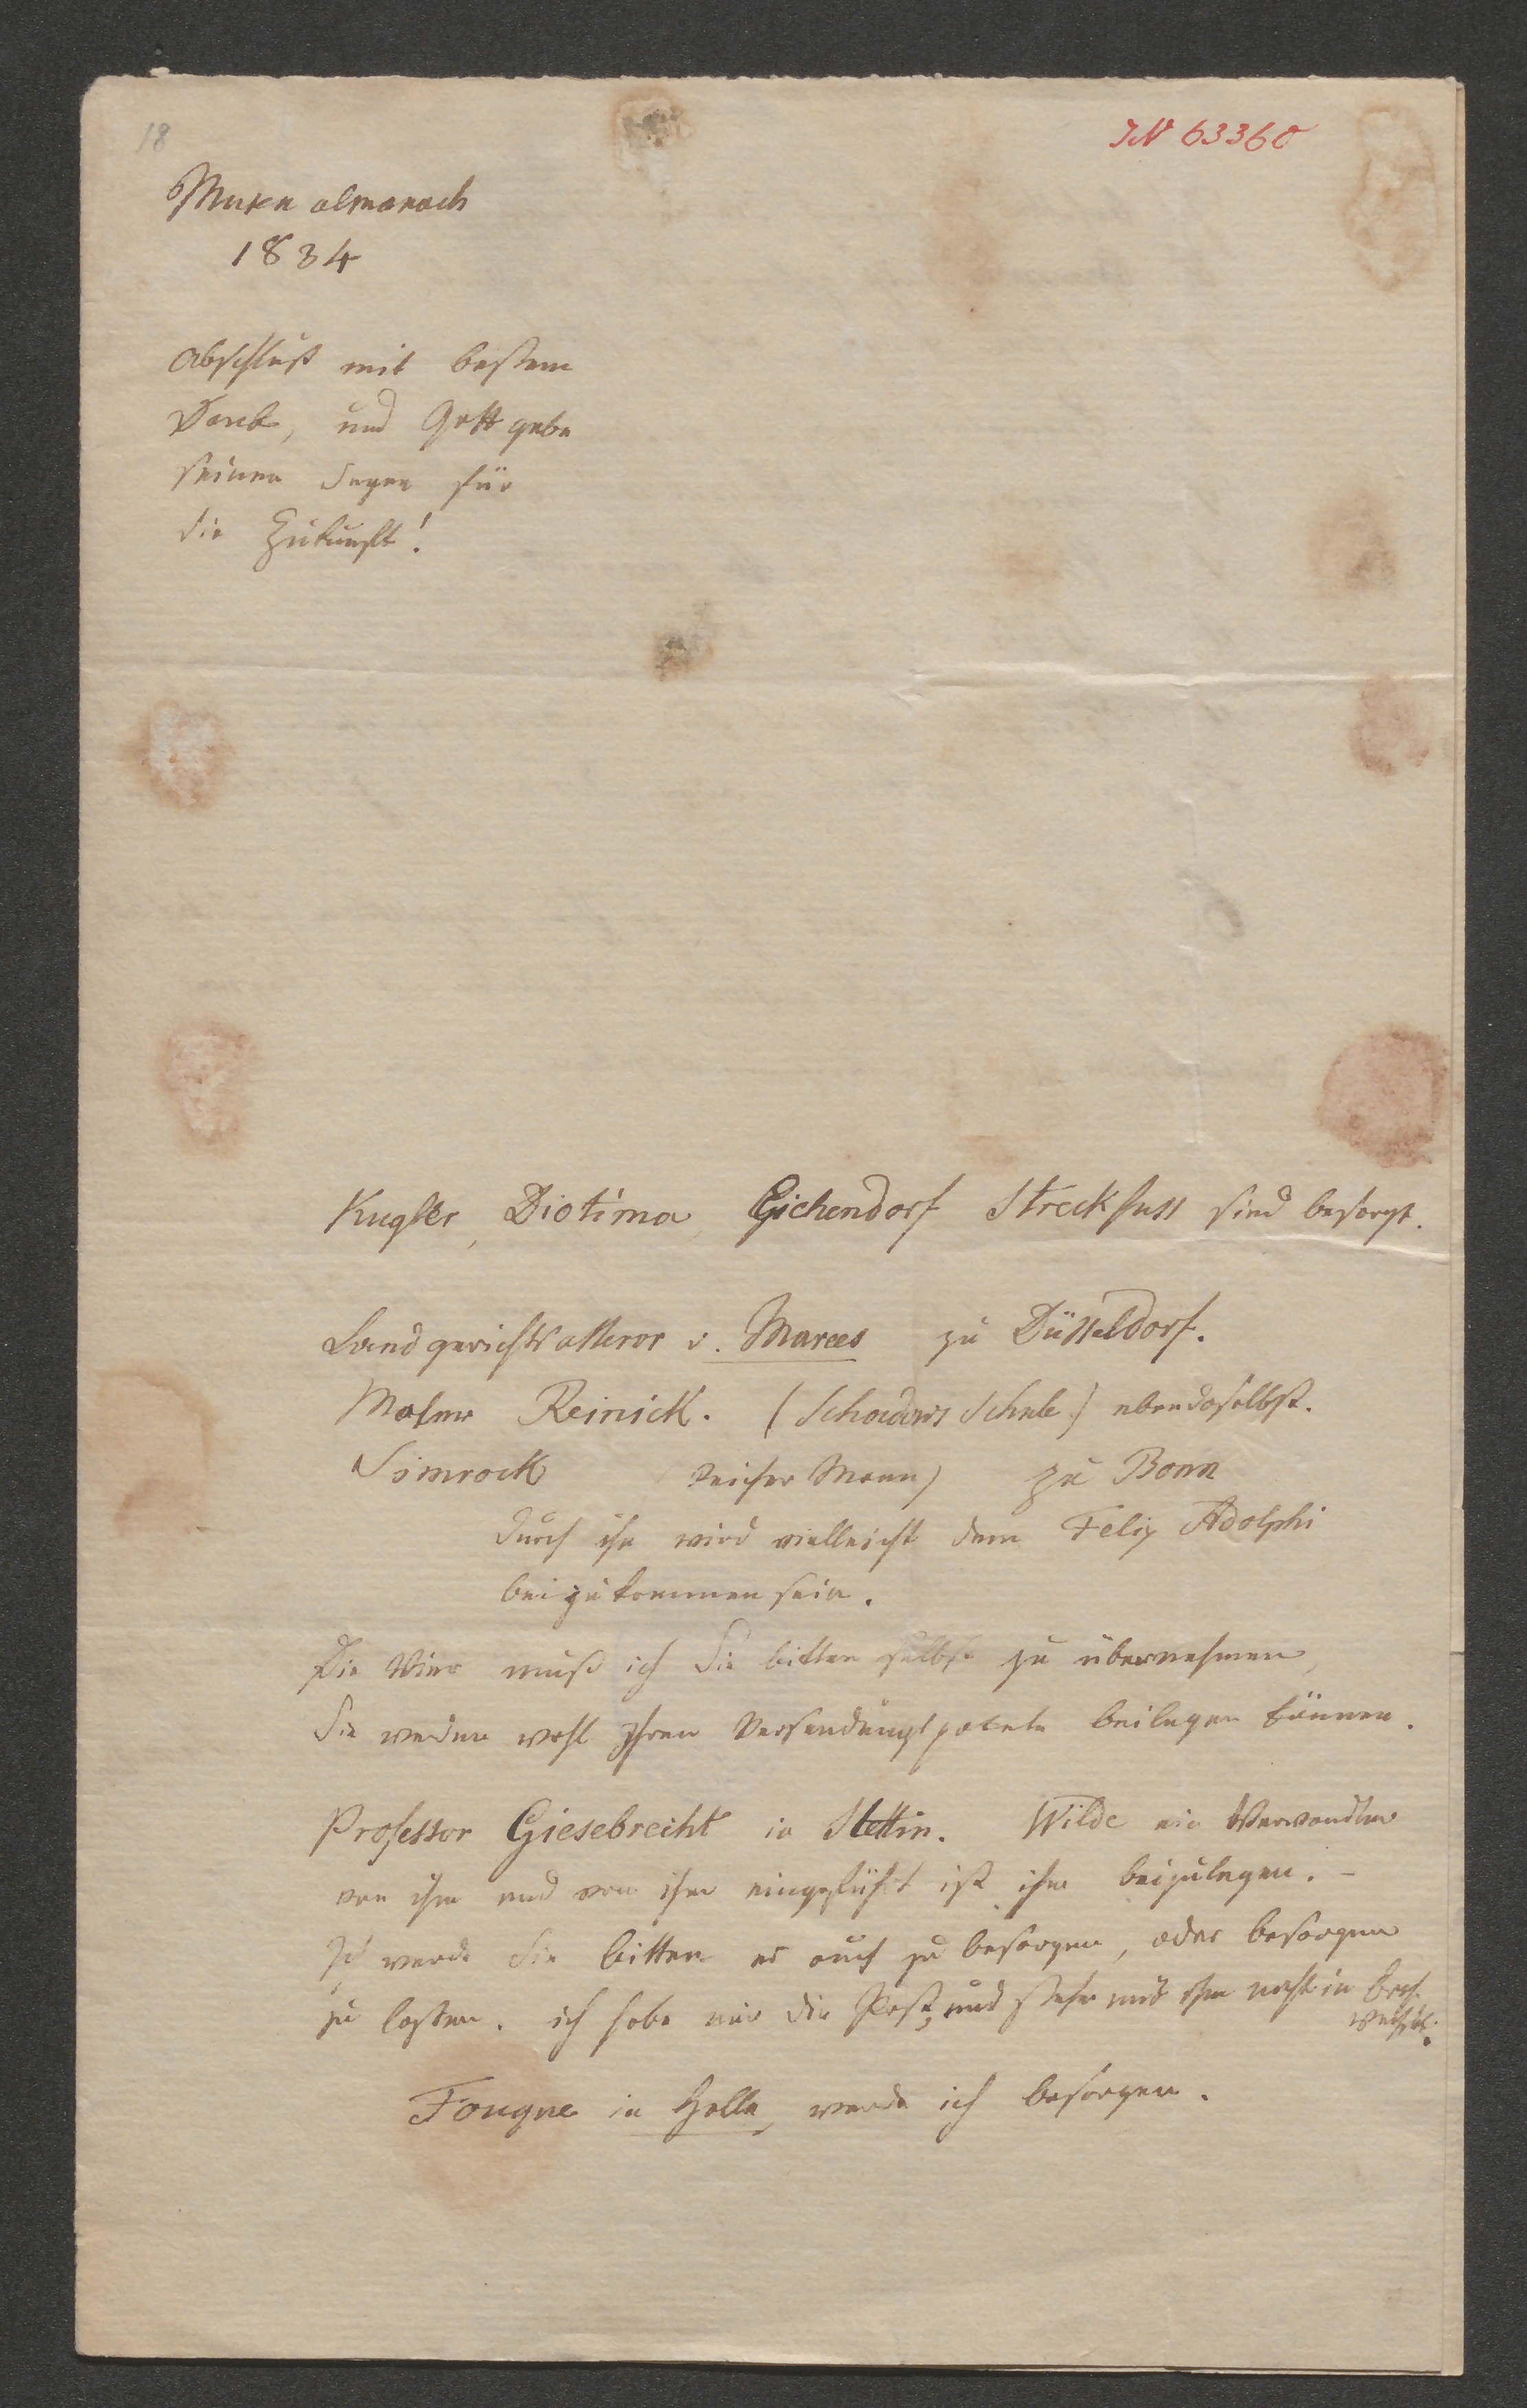 18
IN 63360
Musen almanach
1834
Abschluß mit bestem
Dank, und Gott gebe
seinen Segen für
die Zukunft!
Kugler, Diotima, Eichendorf Streckfuss sind besorgt.
Landgerichts assessor v. Marees zu Düsseldorf.
Mahler Reinick. (Schadows Schule) ebendaselbst.
Simrock (reicher Mann) zu Bonn
durch ihn wird vielleicht dem Felix Adolphi
beizukommen sein.
Die Vier muß ich Sie bitten selbst zu übernehmen,
Sie werden wohl Ihren Versendungspakete beilegen können.
Professor Giesebrecht in Stettin. Wilde ein Verwandter
von ihm und von ihm eingeführt ist ihm beizulegen. –
Ich werde Sie bitten es auch zu besorgen, oder besorgen
zu lassen. ich habe nur die Post, und stehe mit ihm nicht in Brief
wechsel.
Fouque in Halle, werde ich besorgen.